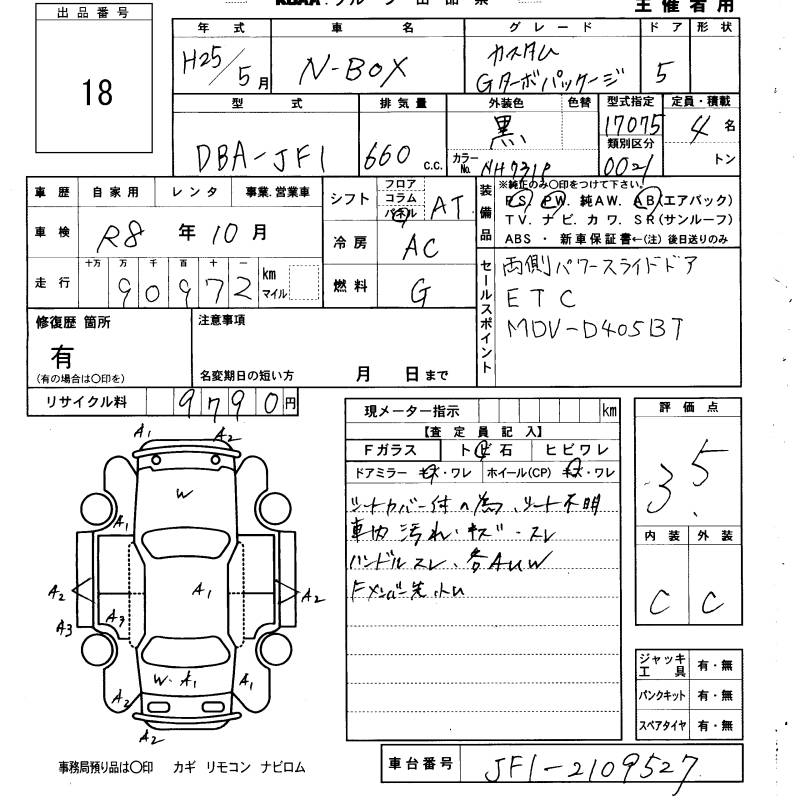 出品番号
18
主催者用
年式 車名 グレード ドア 形状
H25/5月 N-BOX カスタム Gターボパッケージ 5
型式 排気量 外装色 色替 型式指定 定員・積載
DBA-JF1 660 c.c. 黒 17075 4名
カラーNo. NH731P 類別区分 0021 トン
車歴 自家用 レンタ 事業.営業車
シフト フロア コラム パネル AT
装備品 ※純正のみ〇印をつけて下さい。
PS. PW. 純AW. AB(エアバック)
TV. ナビ. カワ. SR(サンルーフ)
ABS ・ 新車保証書←(注) 後日送りのみ
車検 R8年10月
冷房 AC
走行 十万 万 千 百 十 一
90972 km マイル
燃料 G
セールスポイント 両側パワースライドドア
ETC
MDV-D405BT
修復歴 箇所
有
(有の場合は〇印を)
注意事項
名変期日の短い方 月 日まで
リサイクル料 9790円
現メーター指示 km
【査定員記入】
Fガラス トビ石 ヒビワレ
ドアミラー キズ・ワレ ホイール(CP) キズ・ワレ
シートカバー付の為、シート不明
車内 汚れ・キズ・スレ
ハンドルスレ・各AUW
Fメンバー先トU
評価点
3.5
内装 外装
C C
A1 A2
W
A1
A2 A1 A2
A3 A3
W・A1 A1
A2
A2
ジャッキ工具 有・無
パンクキット 有・無
スペアタイヤ 有・無
事務局預り品は〇印 カギ リモコン ナビロム
車台番号 JF1-2109527